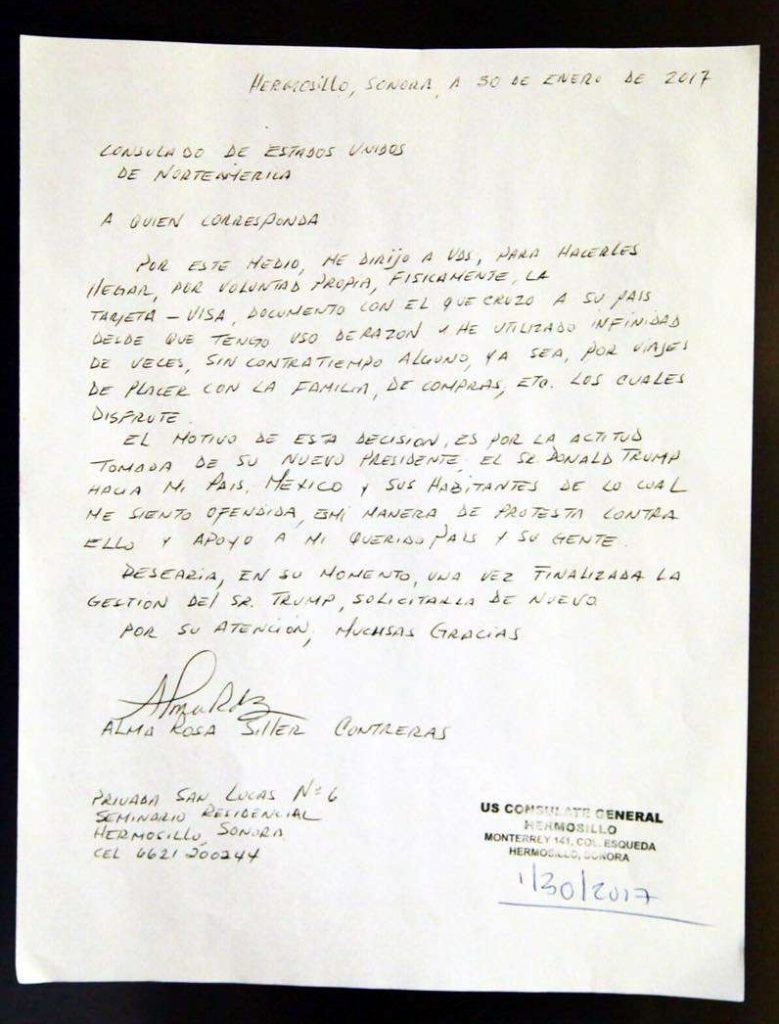 HERMOSILLO, SONORA, A 30 DE ENERO DE 2017
CONSULADO DE ESTADOS UNIDOS
DE NORTEAMERICA
A QUIEN CORRESPONDA
POR ESTE MEDIO, ME DIRIJO A UDS, PARA HACERLES
llEGAR, POR VOLUNTAD PROPIA, FISICAMENTE, LA
TARJETA - VISA, DOCUMENTO CON EL QUE CRUZO A SU PAIS
DESDE QUE TENGO USO DE RAZON Y HE UTILIZADO INFINIDAD
DE VECES, SIN CONTRATIEMPO ALGUNO, YA SEA, POR VIAJES
DE PLACER CON LA FAMILIA, DE COMPRAS, ETC. LOS CUALES
DISFRUTE.
EL MOTIVO DE ESTA DECISION, ES POR LA ACTITUD
TOMADA DE SU NUEVO PRESIDENTE, EL SR. DONALD TRUMP
HACIA MI PAIS, MEXICO Y SUS HABITANTES DE LO CUAL
ME SIENTO OFENDIDA, ES MI MANERA DE PROTESTA CONTRA
ELLO Y APOYO A MI QUERIDO PAIS Y SU GENTE.
DESEARIA, EN SU MOMENTO, UNA VEZ FINALIZADA LA
GESTION DEl SR. TRUMP, SOLICITARLA DE NUEVO.
POR SU ATENCIÓN, MUCHSAS GRACIAS
ALMA ROSA SillER CONTRERAS
PRIVADA SAN LUCAS Nº 6
SEMINARIO RESIDENCIAL
HERMOSILLO, SONORA
CEL 6621 200244
US CONSULATE GENERAL
HERMOSILLO
MONTERREY 141, COL. ESQUEDA
HERMOSILLO, SONORA
1/30/2017